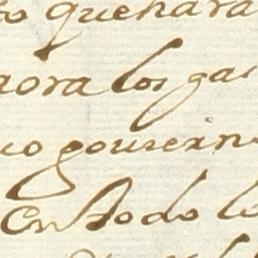 to que hara
aora los gas
co gouiern
en todo lo